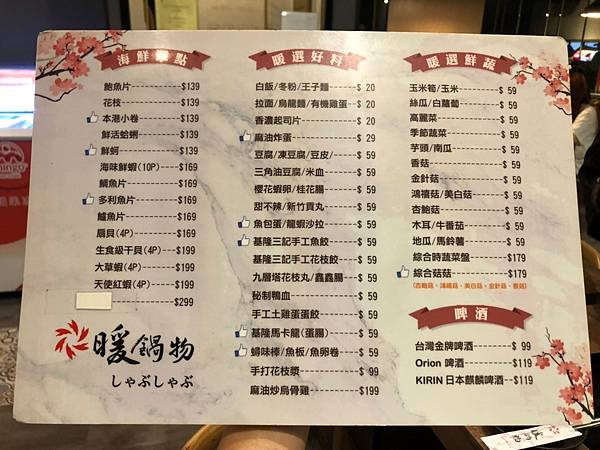 海鮮單點
鮑魚片-----------$139
花枝-------------$139
本港小卷---------$139
鮮活蛤蜊---------$139
鮮蚵-------------$139
海味鮮蝦(10P)----$169
鯛魚片-----------$169
多利魚片---------$169
鱸魚片-----------$169
扇貝(4P)---------$169
生食級干貝(4P)---$199
大草蝦(4P)-------$199
天使紅蝦(4P)-----$199
$299
暖鍋物
しゃぶしゃぶ
暖選好料
白飯/冬粉/王子麵------$ 20
拉麵/烏龍麵/有機雞蛋--$ 20
香濃起司片------------$ 20
麻油炸蛋--------------$ 29
豆腐/凍豆腐/豆皮/-----$ 59
三角油豆腐/米血-------$ 59
櫻花蝦卵/桂花腸-------$ 59
甜不辣/新竹貢丸-------$ 59
魚包蛋/龍蝦沙拉-------$ 59
基隆三記手工魚餃------$ 59
基隆三記手工花枝餃----$ 59
九層塔花枝丸/鑫鑫腸---$ 59
秘制鴨血--------------$ 59
手工土雞蛋蛋餃--------$ 59
基隆馬卡龍(蛋腸)------$ 59
蟳味棒/魚板/魚卵卷----$ 59
手打花枝漿------------$ 99
麻油炒烏骨雞----------$199
暖選鮮蔬
玉米筍/玉米-------$ 59
絲瓜/白蘿蔔-------$ 59
高麗菜------------$ 59
季節蔬菜----------$ 59
芋頭/南瓜---------$ 59
香菇--------------$ 59
金針菇------------$ 59
鴻禧菇/美白菇-----$ 59
杏鮑菇------------$ 59
木耳/牛番茄-------$ 59
地瓜/馬鈴薯-------$ 59
綜合時蔬菜盤------$179
綜合菇菇----------$179
(杏鮑菇、鴻禧菇、美白菇、金針菇、香菇)
啤酒
台灣金牌啤酒------$ 99
Orion 啤酒--------$119
KIRIN 日本麒麟啤酒--$119